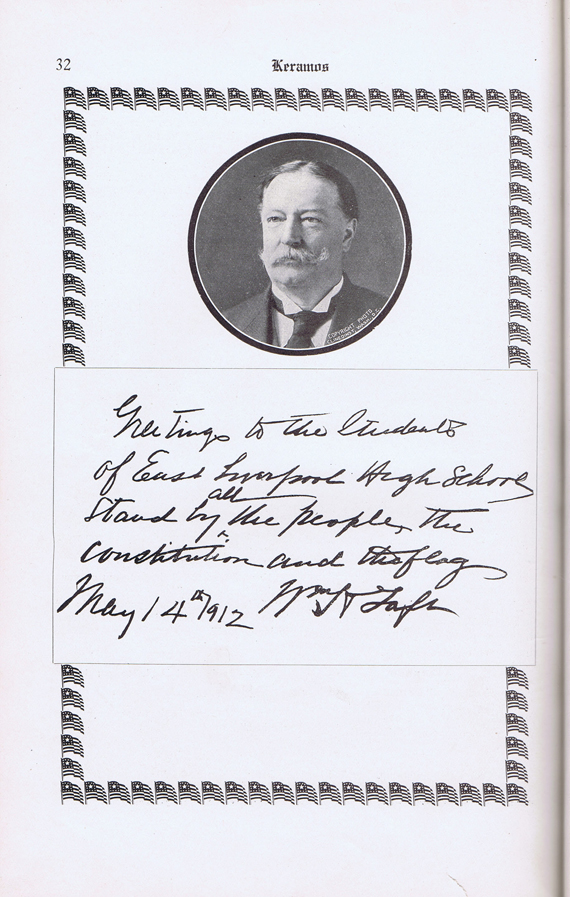 32
Keramos
COPYRIGHT PHOTO
CLINEDINST, WASH. D.C.
Greetings to the Students
of East Liverpool High School
Stand by all the people, the
constitution and the flag
May 14th 1912 Wm H Taft